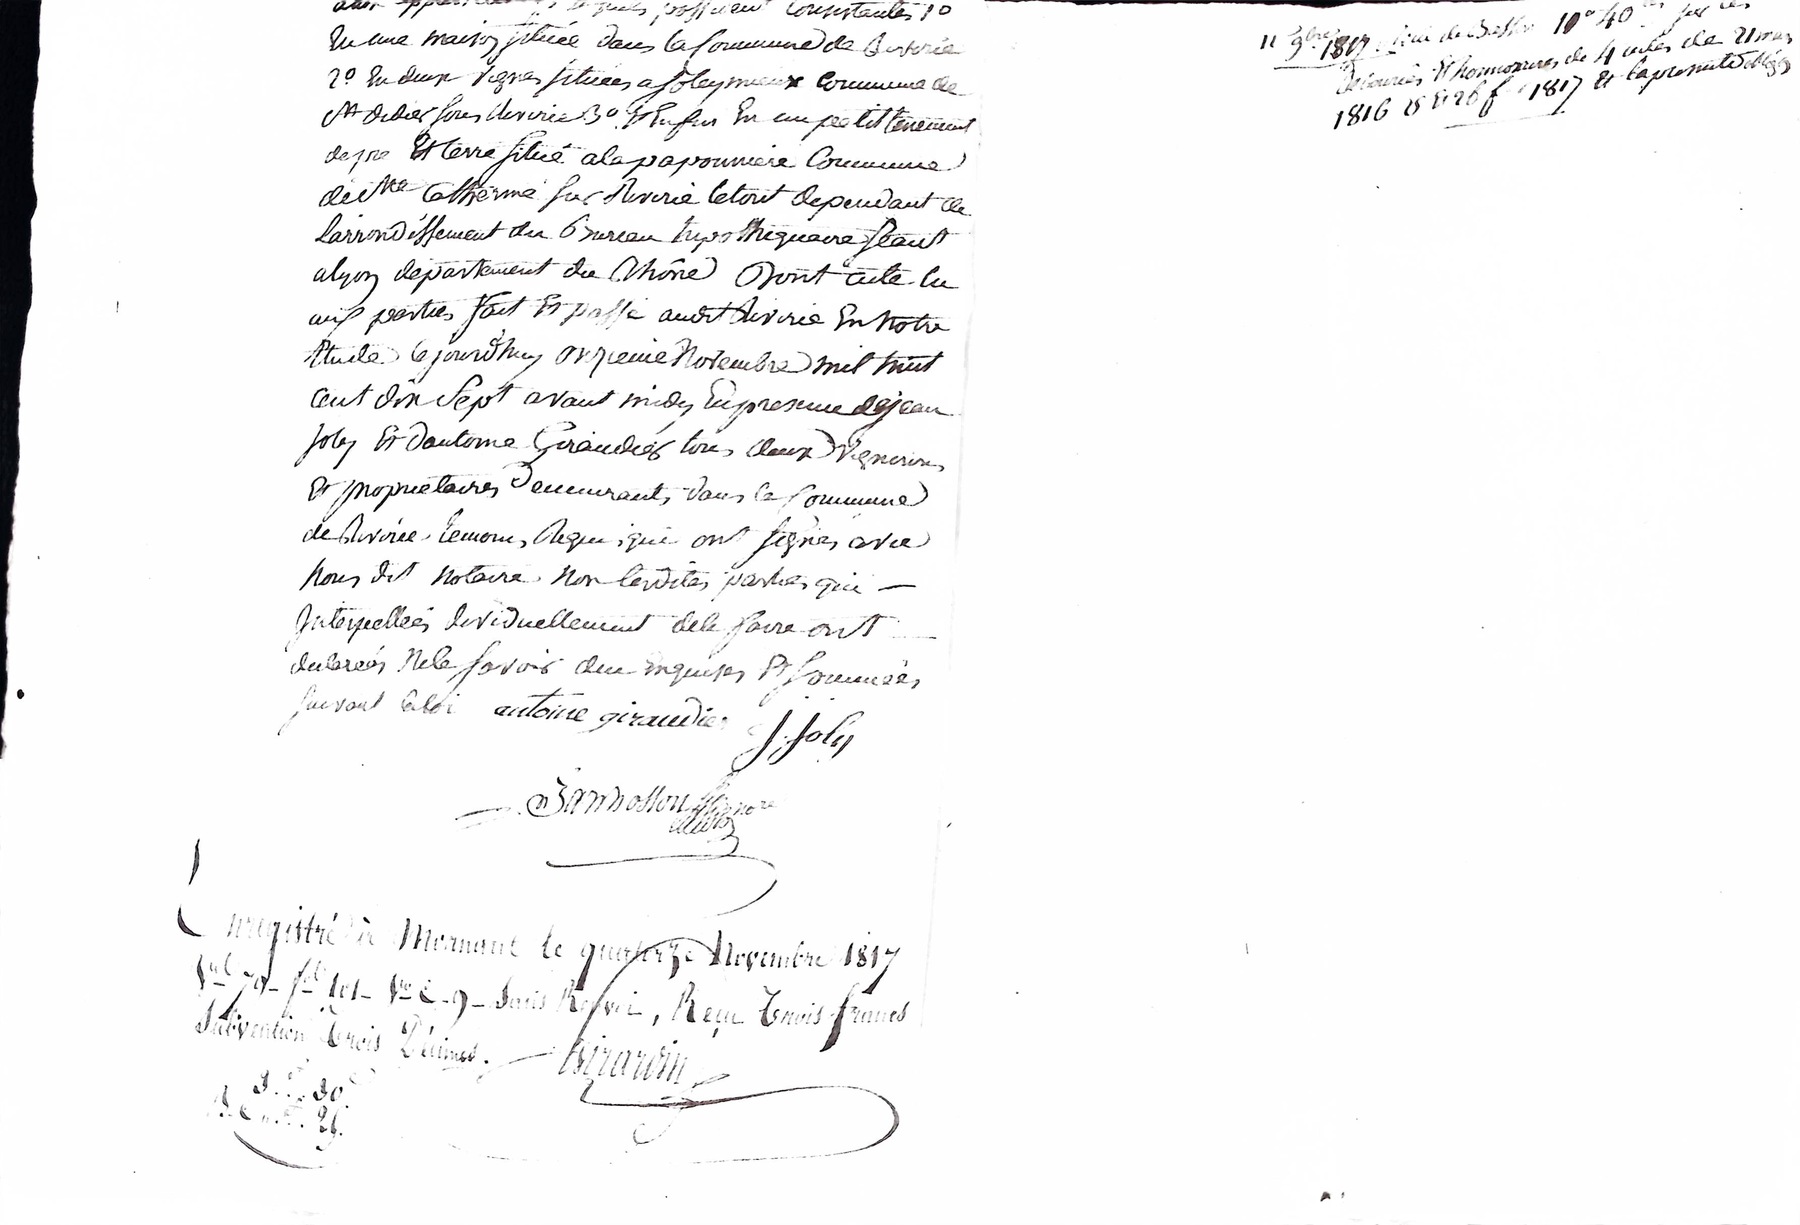 aux appartenances lesquels possedent Consistantes 1o
En une maison située dans la Commune de Riverie
2o En deux vignes situées a soleymieux Commune de
St didier sous Riverie 3o Et Enfin En un petit tenement
de pré Et terre situé a la paponniere Commune
de Ste Catherine sur Riverie le tout dependant de
larrondissement du Bureau hipothiquaire séant
a lyon departement du Rhône Dont acte lu
aux parties fait Et passé audit Riverie En notre
Etude Cejourdhuy onzieme Novembre mil huit
cent dix Sept avant midy En presence de jean
Joly Et dantoine Giraudier tous deux Vignerons
Et proprietaires Demeurants dans la Commune
de Riverie temoins Requis qui ont signés avec
Nous dit Notaire Non lesdites parties qui —
Interpellées dividuellement de le faire ont
declarées Ne le savoir de ce Enquises Et sommées
suivant la loi antoine giraudier J. Joly
Enregistré à Mornant le quatorze Novembre 1817
Vol 70 fol 101 Vo C. 9 Sans Renvoi, Reçu Trois francs
Subvention Trois Décimes. Girardin
3. 30
11 9bre 1817 10o 40
Debourses Et honnoraires de 4 actes de 21 mars
1816 1817 Et la presente